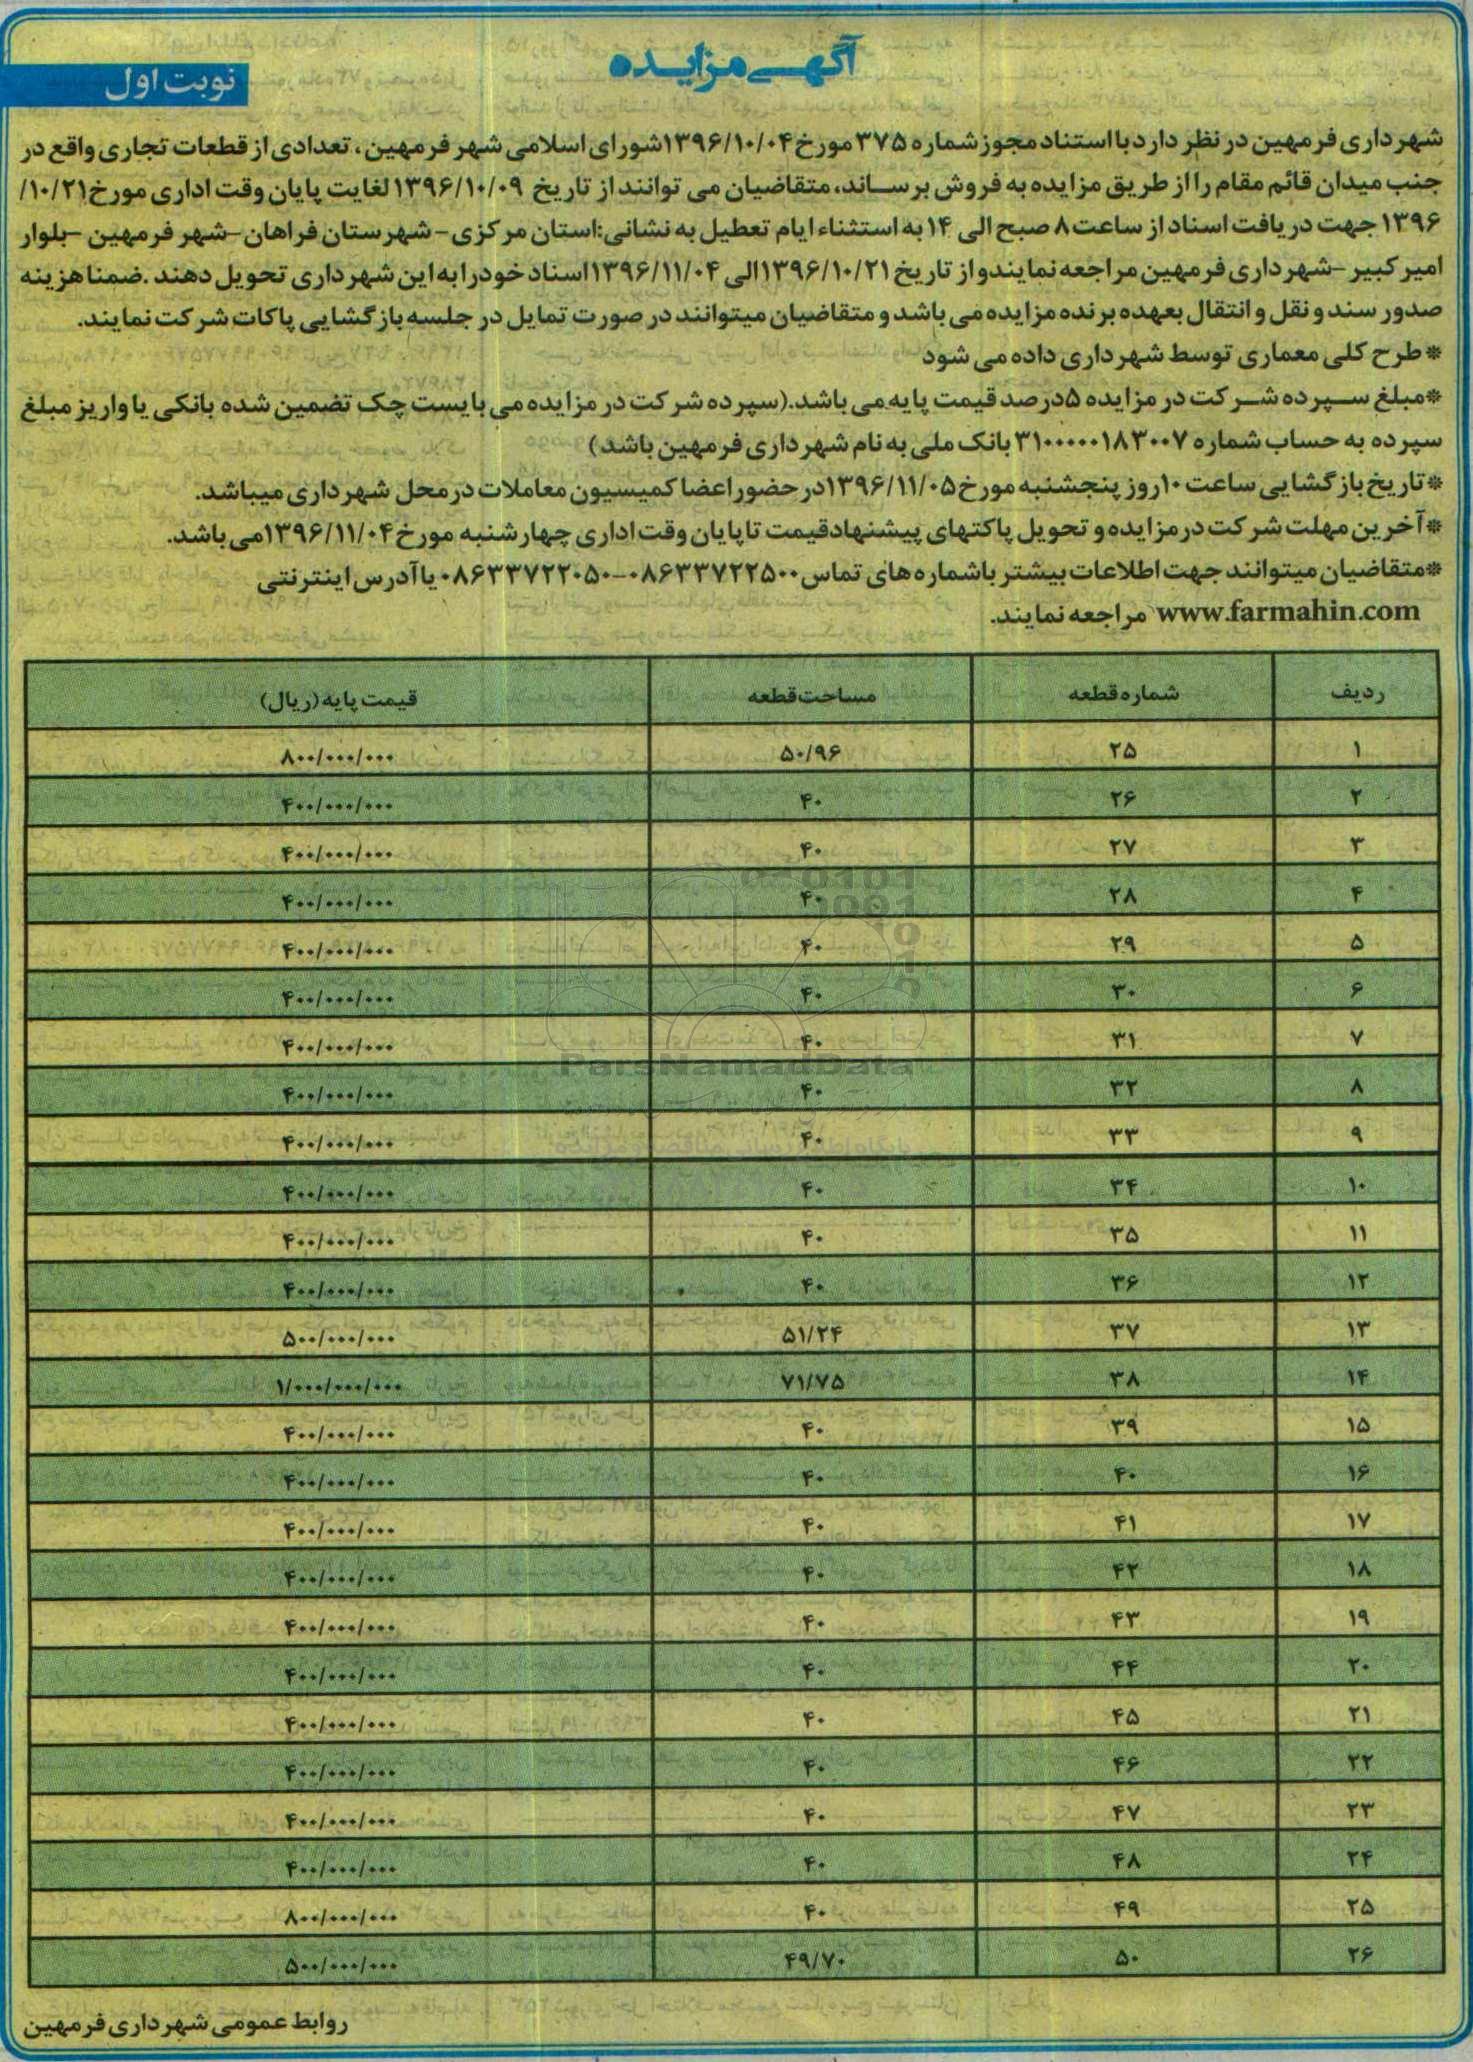 آگهی مزایده
نوبت اول
شهرداری فرمهین در نظر دارد با استناد مجوز شماره ۳۷۵ مورخ ۱۳۹۶/۱۰/۰۴ شورای اسلامی شهر فرمهین، تعدادی از قطعات تجاری واقع در
جنب میدان قائم مقام را از طریق مزایده به فروش برساند، متقاضیان می توانند از تاریخ ۱۳۹۶/۱۰/۰۹ لغایت پایان وقت اداری مورخ ۱۰/۲۱/
۱۳۹۶ جهت دریافت اسناد از ساعت ۸ صبح الی ۱۴ به استثناء ایام تعطیل به نشانی: استان مرکزی - شهرستان فراهان - شهر فرمهین - بلوار
امیر کبیر - شهرداری فرمهین مراجعه نمایند و از تاریخ ۱۳۹۶/۱۰/۲۱ الی ۱۳۹۶/۱۱/۰۴ اسناد خود را به این شهرداری تحویل دهند. ضمنا هزینه
صدور سند و نقل و انتقال بعهده برنده مزایده می باشد و متقاضیان میتوانند در صورت تمایل در جلسه بازگشایی پاکات شرکت نمایند.
*طرح کلی معماری توسط شهرداری داده می شود
*مبلغ سپرده شرکت در مزایده ۵ درصد قیمت پایه می باشد. (سپرده شرکت در مزایده می بایست چک تضمین شده بانکی یا واریز مبلغ
سپرده به حساب شماره ۳۱۰۰۰۰۰۱۸۳۰۰۷ بانک ملی به نام شهرداری فرمهین باشد)
*تاریخ بازگشایی ساعت ۱۰ روز پنجشنبه مورخ ۱۳۹۶/۱۱/۰۵ در حضور اعضا کمیسیون معاملات در محل شهرداری میباشد.
*آخرین مهلت شرکت در مزایده و تحویل پاکتهای پیشنهاد قیمت تا پایان وقت اداری چهارشنبه مورخ ۱۳۹۶/۱۱/۰۴ می باشد.
*متقاضیان میتوانند جهت اطلاعات بیشتر با شماره های تماس ۰۸۶۳۳۷۲۲۵۰۰-۰۸۶۳۳۷۲۲۰۵۰ یا آدرس اینترنتی
www.farmahin.com مراجعه نمایند.
ردیف شماره قطعه مساحت قطعه قیمت پایه (ریال)
۱ ۲۵ ۵۰/۹۶ ۸۰۰/۰۰۰/۰۰۰
۲ ۲۶ ۴۰ ۴۰۰/۰۰۰/۰۰۰
۳ ۲۷ ۴۰ ۴۰۰/۰۰۰/۰۰۰
۴ ۲۸ ۴۰ ۴۰۰/۰۰۰/۰۰۰
۵ ۲۹ ۴۰ ۴۰۰/۰۰۰/۰۰۰
۶ ۳۰ ۴۰ ۴۰۰/۰۰۰/۰۰۰
۷ ۳۱ ۴۰ ۴۰۰/۰۰۰/۰۰۰
۸ ۳۲ ۴۰ ۴۰۰/۰۰۰/۰۰۰
۹ ۳۳ ۴۰ ۴۰۰/۰۰۰/۰۰۰
۱۰ ۳۴ ۴۰ ۴۰۰/۰۰۰/۰۰۰
۱۱ ۳۵ ۴۰ ۴۰۰/۰۰۰/۰۰۰
۱۲ ۳۶ ۴۰ ۴۰۰/۰۰۰/۰۰۰
۱۳ ۳۷ ۵۱/۲۴ ۵۰۰/۰۰۰/۰۰۰
۱۴ ۳۸ ۷۱/۷۵ ۱/۰۰۰/۰۰۰/۰۰۰
۱۵ ۳۹ ۴۰ ۴۰۰/۰۰۰/۰۰۰
۱۶ ۴۰ ۴۰ ۴۰۰/۰۰۰/۰۰۰
۱۷ ۴۱ ۴۰ ۴۰۰/۰۰۰/۰۰۰
۱۸ ۴۲ ۴۰ ۴۰۰/۰۰۰/۰۰۰
۱۹ ۴۳ ۴۰ ۴۰۰/۰۰۰/۰۰۰
۲۰ ۴۴ ۴۰ ۴۰۰/۰۰۰/۰۰۰
۲۱ ۴۵ ۴۰ ۴۰۰/۰۰۰/۰۰۰
۲۲ ۴۶ ۴۰ ۴۰۰/۰۰۰/۰۰۰
۲۳ ۴۷ ۴۰ ۴۰۰/۰۰۰/۰۰۰
۲۴ ۴۸ ۴۰ ۴۰۰/۰۰۰/۰۰۰
۲۵ ۴۹ ۴۰ ۸۰۰/۰۰۰/۰۰۰
۲۶ ۵۰ ۴۹/۷۰ ۵۰۰/۰۰۰/۰۰۰
ParsNamadData
روابط عمومی شهرداری فرمهین